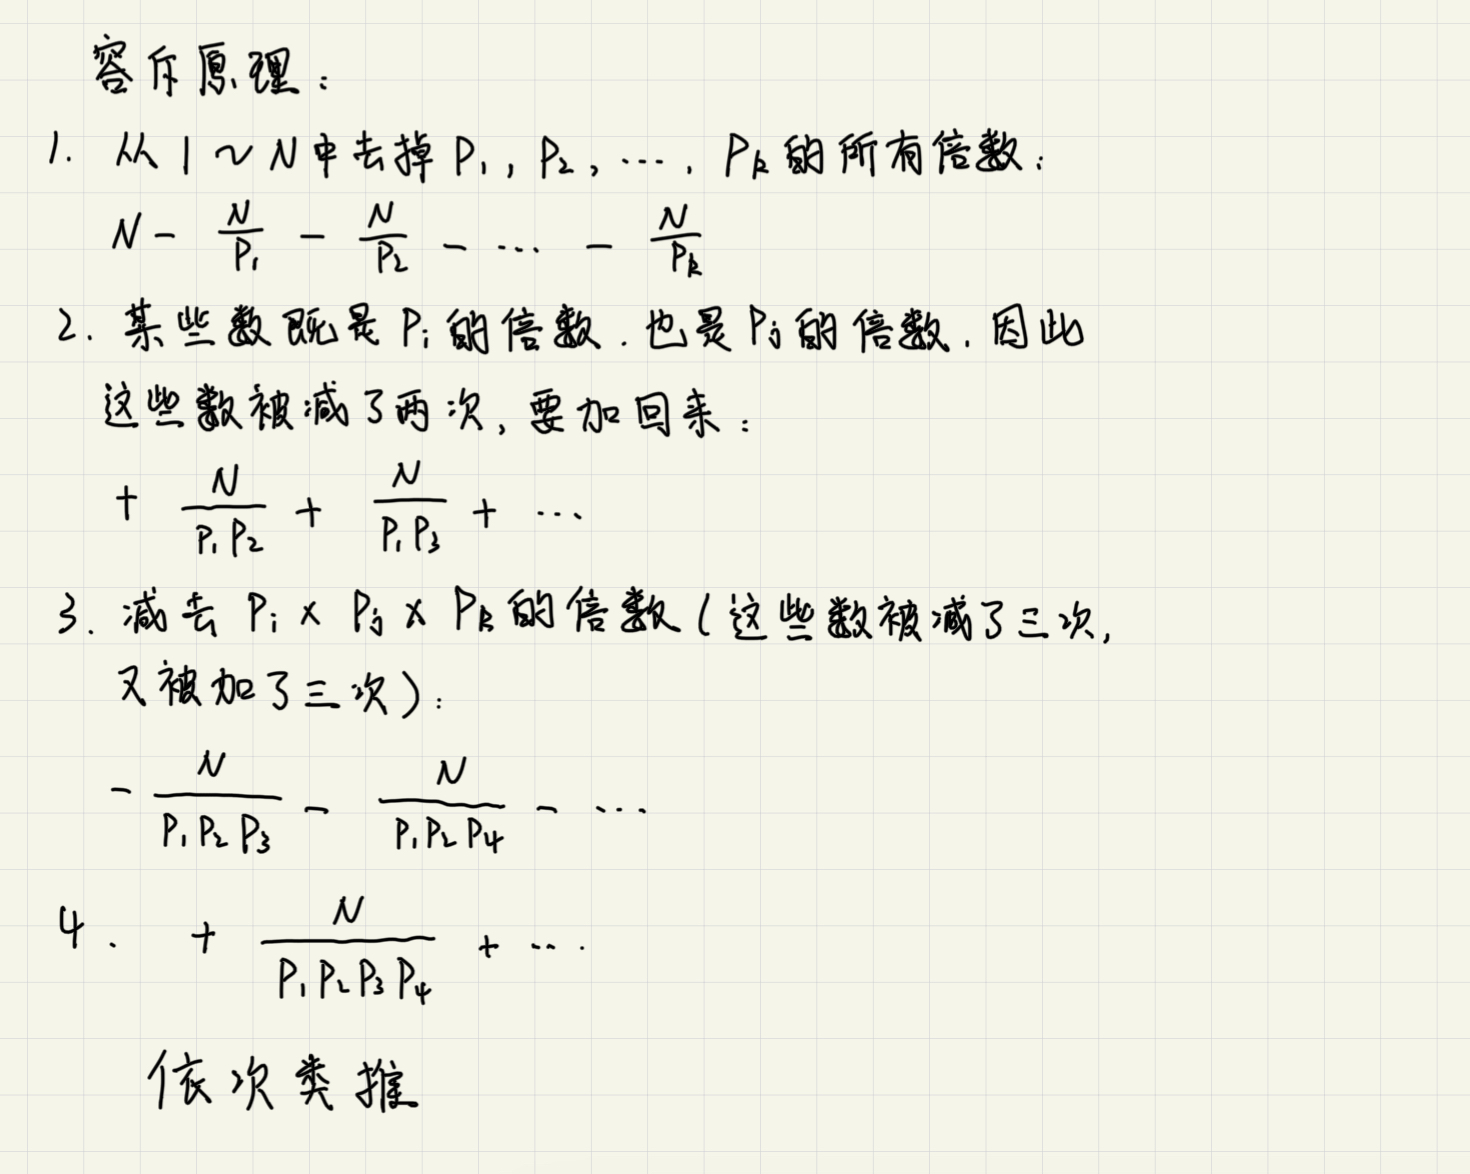 容斥原理：
1. 从 1 ~ N 中去掉 P₁, P₂, …, Pₖ 的所有倍数：
N - N/P₁ - N/P₂ - … - N/Pₖ
2. 某些数既是 Pᵢ 的倍数, 也是 Pⱼ 的倍数, 因此
这些数被减了两次, 要加回来：
+ N/(P₁P₂) + N/(P₁P₃) + …
3. 减去 Pᵢ × Pⱼ × Pₖ 的倍数 (这些数被减了三次,
又被加了三次)：
- N/(P₁P₂P₃) - N/(P₁P₂P₄) - …
4. + N/(P₁P₂P₃P₄) + …
依次类推